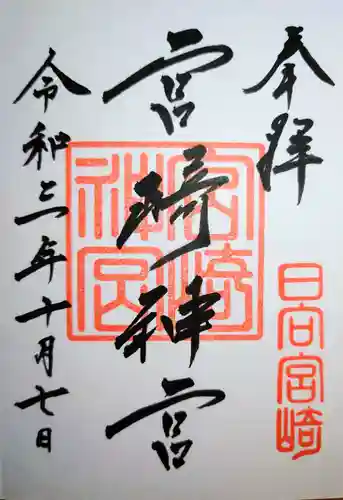 奉拝
日向宮崎
宮崎神宮
宮崎神宮
令和三年十月七日